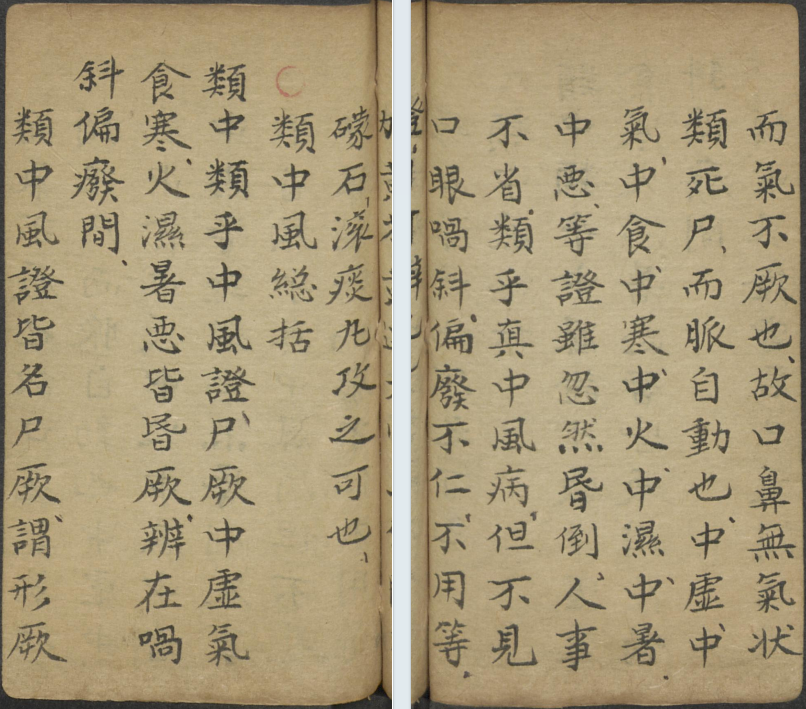 礞石滚痰九攻之可也
類中風総括
類中類乎中風證尸厥中虛氣
食寒火濕暑悪皆昏厥辨在喎
斜偏癈間
類中風證皆名尸厥謂形厥
而氣不厥也故口鼻無氣状
類死尸而脈自動也中虛中
氣中食中寒中火中濕中暑
中悪等證雖忽然昏倒人事
不省類乎真中風病但不見
口眼喎斜偏廢不仁不用等